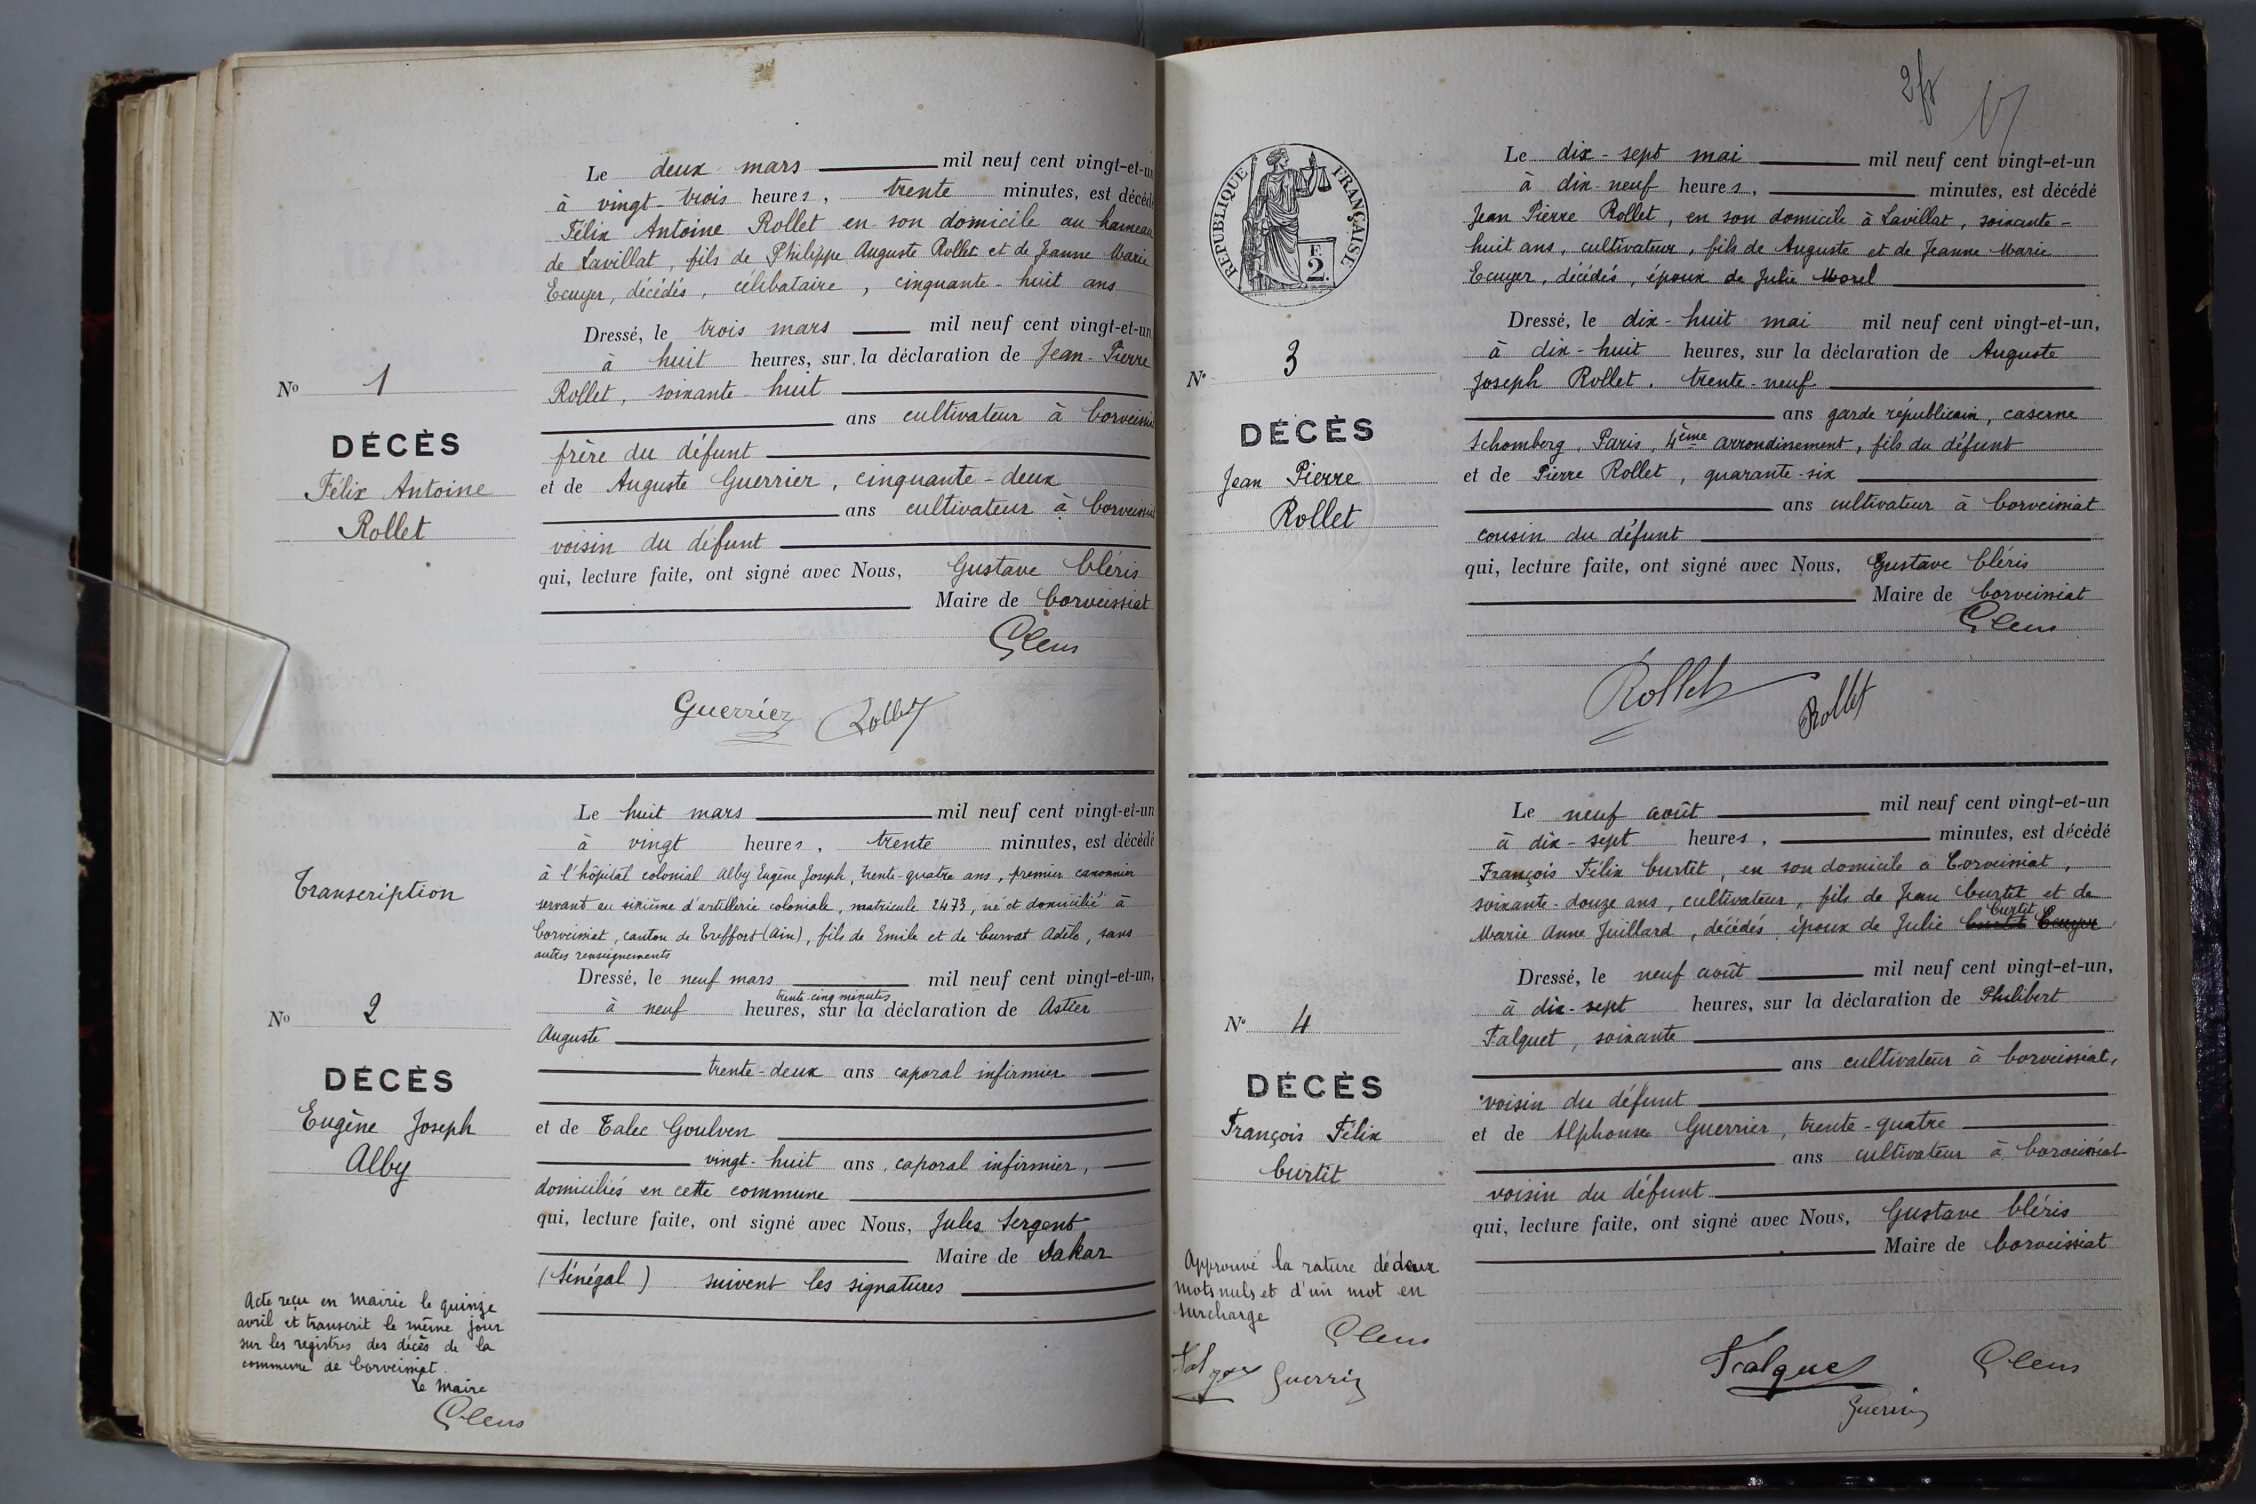 Le deux mars mil neuf cent vingt-et-un
à vingt-trois heures, trente minutes, est décédé
Félix Antoine Rollet en son domicile au hameau
de Lavillat, fils de Philippe Auguste Rollet et de Jeanne Marie
Ecuyer, décédés, célibataire, cinquante-huit ans
Dressé, le trois mars mil neuf cent vingt-et-un
à huit heures, sur la déclaration de Jean-Pierre
Rollet, soixante-huit
ans cultivateur à Corveissiat
frère du défunt
et de Auguste Guerrier, cinquante-deux
ans cultivateur à Corveissiat
voisin du défunt
qui, lecture faite, ont signé avec Nous, Gustave Cléris
Maire de Corveissiat
Guerrier Rollet
No 1
DÉCÈS
Félix Antoine
Rollet
Transcription
No 2
DÉCÈS
Eugène Joseph
Alby
Acte reçu en Mairie le quinze
avril et transcrit le même jour
sur les registres des décès de la
commune de Corveissiat.
Le Maire
Le huit mars mil neuf cent vingt-et-un
à vingt heures, trente minutes, est décédé
à l'hôpital colonial Alby Eugène Joseph, trente-quatre ans, premier canonnier
servant au sixième d'artillerie coloniale, matricule 2473, né et domicilié à
Corveissiat, canton de Treffort (Ain), fils de Emile et de Curvat Adèle, sans
autres renseignements
Dressé, le neuf mars mil neuf cent vingt-et-un,
trente-cinq minutes
à neuf heures, sur la déclaration de Astier
Auguste
trente-deux ans caporal infirmier
et de Talec Goulven
vingt-huit ans, caporal infirmier,
domiciliés en cette commune
qui, lecture faite, ont signé avec Nous, Jules Sergent
Maire de Dakar
(Sénégal) suivent les signatures
RÉPUBLIQUE FRANÇAISE
F.
2.
No 3
DÉCÈS
Jean Pierre
Rollet
Le dix-sept mai mil neuf cent vingt-et-un
à dix-neuf heures, minutes, est décédé
Jean Pierre Rollet, en son domicile à Lavillat, soixante-
huit ans, cultivateur, fils de Auguste et de Jeanne Marie
Ecuyer, décédés, époux de Julie Morel
Dressé, le dix-huit mai mil neuf cent vingt-et-un,
à dix-huit heures, sur la déclaration de Auguste
Joseph Rollet, trente-neuf
ans garde républicain, caserne
Schomberg, Paris, 4ème arrondissement, fils du défunt
et de Pierre Rollet, quarante-six
ans cultivateur à Corveissiat
cousin du défunt
qui, lecture faite, ont signé avec Nous, Gustave Cléris
Maire de Corveissiat
Rollet Rollet
No 4
DÉCÈS
François Félix
Curtit
Approuvé la rature de deux
mots nuls et d'un mot en
surcharge
Le neuf août mil neuf cent vingt-et-un
à dix-sept heures, minutes, est décédé
François Félix Curtit, en son domicile à Corveissiat,
soixante-douze ans, cultivateur, fils de Jean Curtit et de
Curtit
Marie Anne Juillard, décédés, époux de Julie
Dressé, le neuf août mil neuf cent vingt-et-un,
à dix-sept heures, sur la déclaration de Philibert
Falquet, soixante
ans cultivateur à Corveissiat,
voisin du défunt
et de Alphonse Guerrier, trente-quatre
ans cultivateur à Corveissiat
voisin du défunt
qui, lecture faite, ont signé avec Nous, Gustave Cléris
Maire de Corveissiat
Falquet